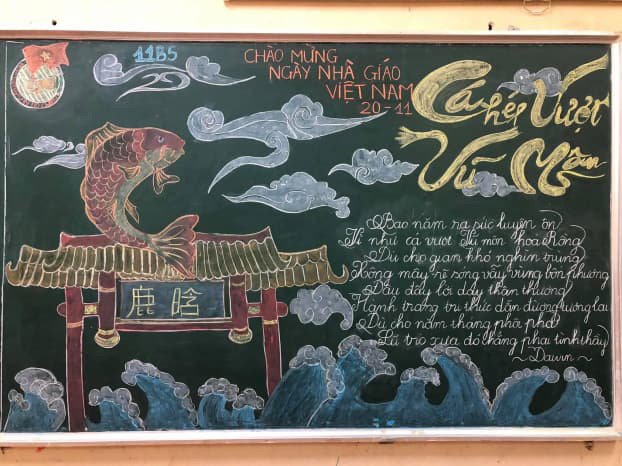 11B5
CHÀO MỪNG
NGÀY NHÀ GIÁO
VIỆT NAM
20-11
Cá chép Vượt
Vũ Môn
鹿晗
Bao năm ra sức luyện ôn
Ví như cá vượt Vũ môn hóa Rồng
Dù cho gian khó nghìn trùng
Rồng mây rẽ sóng vẫy vùng bốn phương
Dấu lời dạy thân thương
Hành trang tri thức dẫn đường tương lai
Dù cho năm tháng phôi pha
Là trò xưa đó chẳng phai tình thầy
~Dawn~